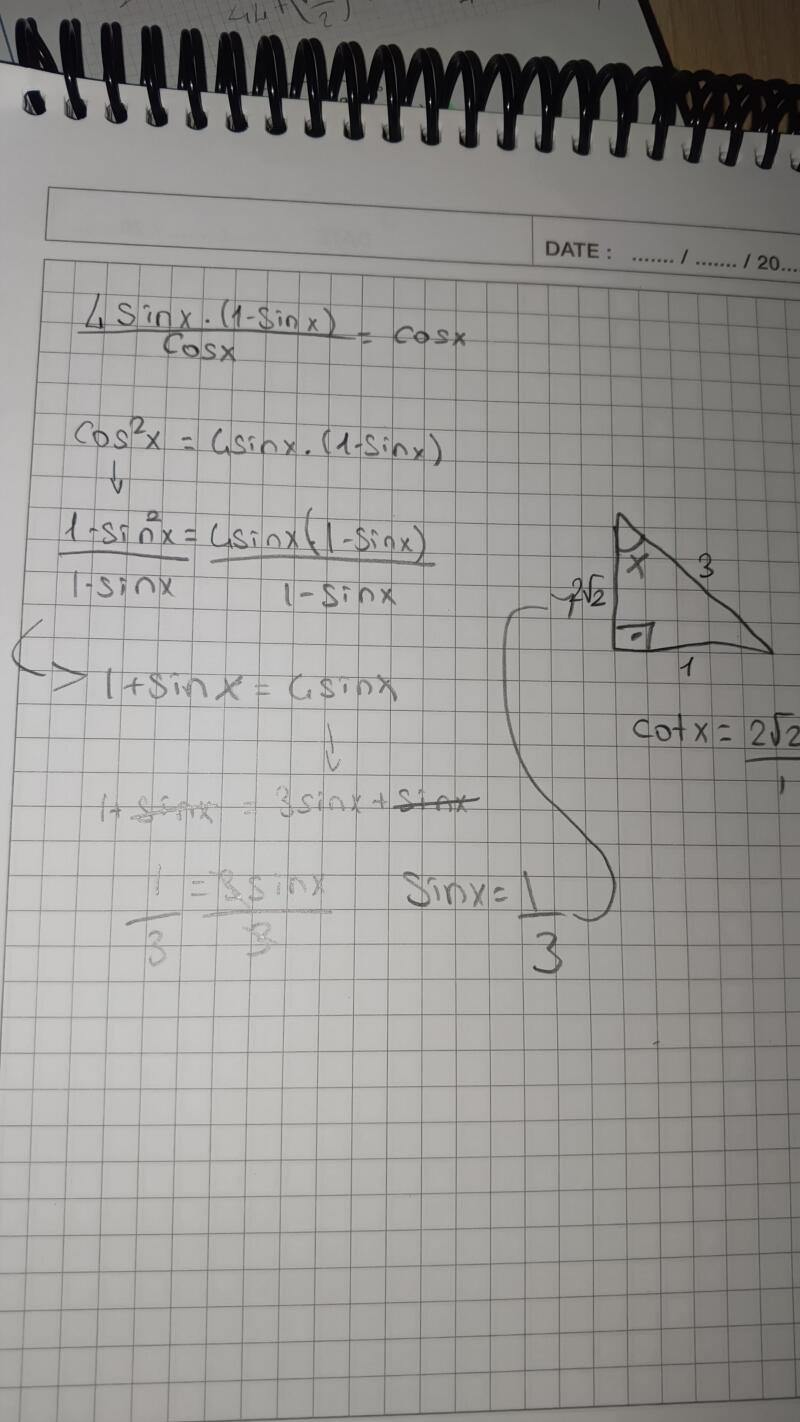 DATE : ....... / ....... / 20....
4sinx.(1-sinx)
cosx
= cosx
cos²x = 4sinx.(1-sinx)
↓
1-sin²x = 4sinx(1-sinx)
1-sinx 1-sinx
> 1+sinx = 4sinx
↓
1+sinx = 3sinx+sinx
1 = 3sinx
3 3
sinx = 1
3
x
3
2√2
1
cotx = 2√2
1